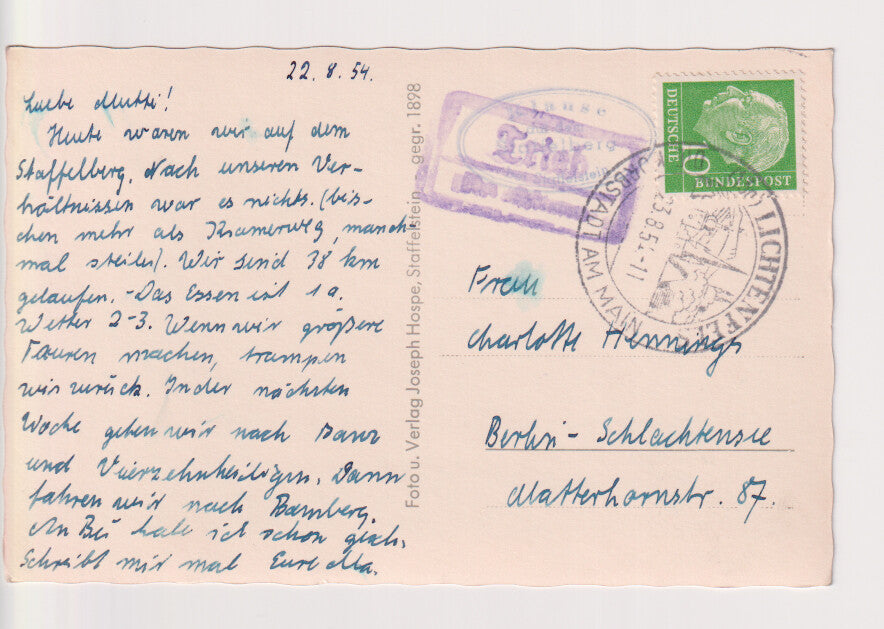 22.8.54.
Liebe Mutti!
Heute waren wir auf dem
Staffelberg. Nach unseren Ver-
hältnissen war es nichts. (bis-
chen mehr als Kramerweg, manch-
mal steiler). Wir sind 38 km
gelaufen. - Das Essen ist 1a.
Wetter 2-3. Wenn wir größere
Touren machen, trampen
wir zurück. In der nächsten
Woche gehen wir nach Banz
und Vierzehnheiligen. Dann
fahren wir nach Bamberg.
An Bei habe ich schon geschr.
Schreibt mir mal Eure Ma.
Foto u. Verlag Joseph Hospe, Staffelstein gegr. 1898
Klause
Staffelberg
Staffelstein
DEUTSCHE
BUNDESPOST
10
LICHTENFELS
KORBSTADT AM MAIN
23.8.54-11
Frau
Charlotte Hennings
Berlin - Schlachtensee
Matterhornstr. 87.